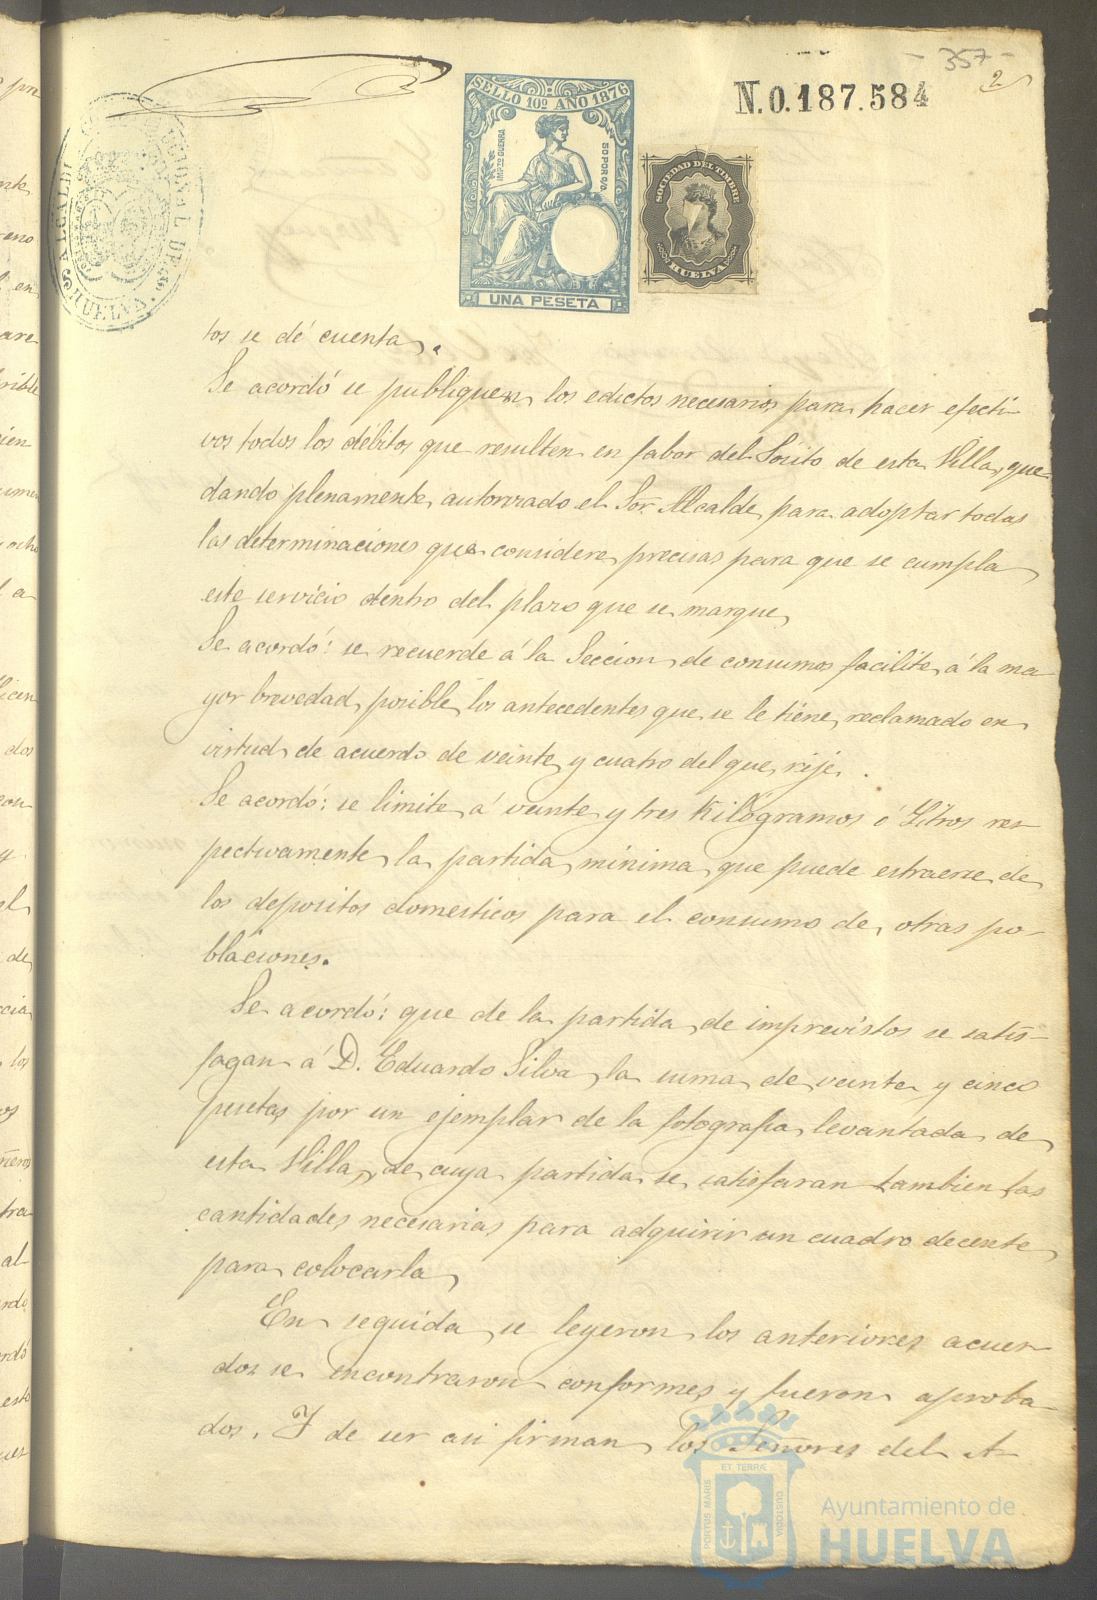 357
2
N.0.187.584
SELLO 10º AÑO 1876
IMPTO GUERRA
50 POR %
UNA PESETA
SOCIEDAD DEL TIMBRE
HUELVA
ALCALDIA
HUELVA
tos se dé cuenta.
Se acordó se publiquen los edictos necesarios para hacer efecti-
vos todos los débitos que resulten en fabor del Pósito de esta Villa, que-
dando plenamente autorizado el Sor. Alcalde para adoptar todas
las determinaciones que considere precisas para que se cumpla
este servicio dentro del plazo que se marque
Se acordó: se recuerde á la Seccion de consumos facilite á la ma-
yor brevedad posible los antecedentes que se le tiene reclamado en
virtud de acuerdo de veinte y cuatro del que rije.
Se acordó: se limite á veinte y tres Kilógramos ó Litros res-
pectivamente la partida mínima que puede estraerse de
los depositos domesticos para el consumo de otras po-
blaciones.
Se acordó: que de la partida de imprevistos se satis-
fagan á D. Eduardo Silva la suma de veinte y cinco
pesetas por un ejemplar de la fotografia levantada de
esta Villa, de cuya partida se satisfaran tambien las
cantidades necesarias para adquirir un cuadro decente
para colocarla
En seguida se leyeron los anteriores acuer-
dos se encontraron conformes y fueron aproba-
dos. Y de ser asi firman los Señores del A-
PORTUS MARIS
ET TERRÆ
CUSTODIA
Ayuntamiento de
HUELVA